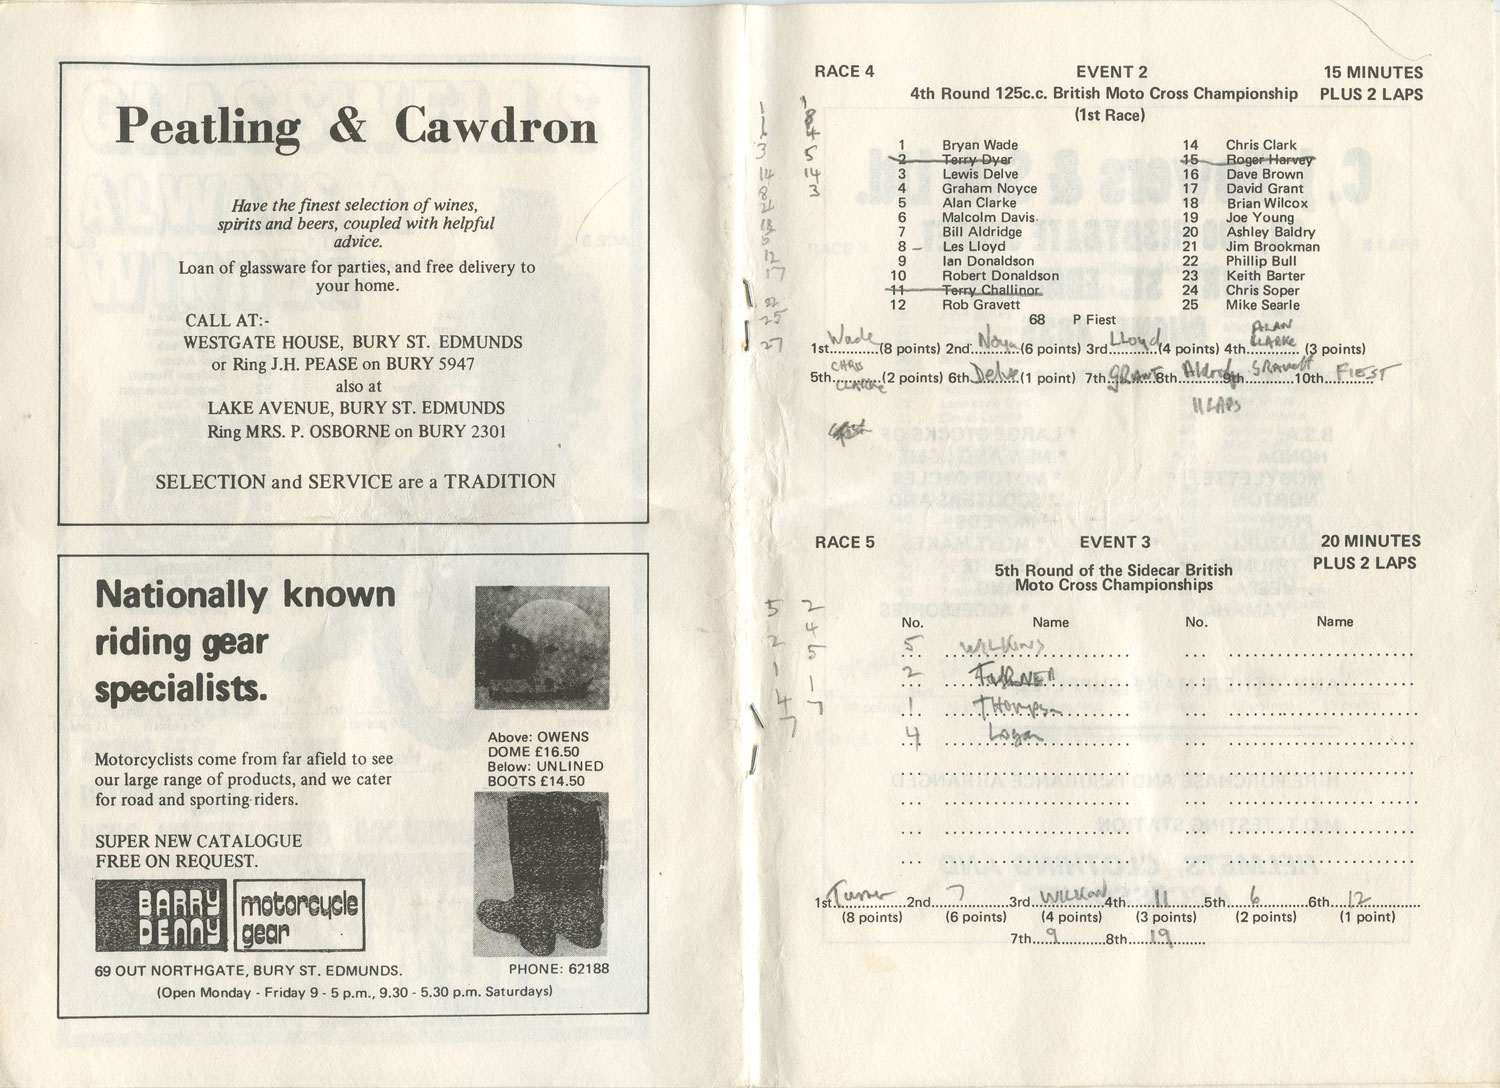 Peatling & Cawdron
Have the finest selection of wines,
spirits and beers, coupled with helpful
advice.
Loan of glassware for parties, and free delivery to
your home.
CALL AT:-
WESTGATE HOUSE, BURY ST. EDMUNDS
or Ring J.H. PEASE on BURY 5947
also at
LAKE AVENUE, BURY ST. EDMUNDS
Ring MRS. P. OSBORNE on BURY 2301
SELECTION and SERVICE are a TRADITION
Nationally known
riding gear
specialists.
Above: OWENS
DOME £16.50
Below: UNLINED
BOOTS £14.50
Motorcyclists come from far afield to see
our large range of products, and we cater
for road and sporting riders.
SUPER NEW CATALOGUE
FREE ON REQUEST.
BARRY DENNY
motorcycle gear
69 OUT NORTHGATE, BURY ST. EDMUNDS.
PHONE: 62188
(Open Monday - Friday 9 - 5 p.m., 9.30 - 5.30 p.m. Saturdays)
RACE 4 EVENT 2 15 MINUTES
4th Round 125c.c. British Moto Cross Championship PLUS 2 LAPS
(1st Race)
1 Bryan Wade 14 Chris Clark
2 Terry Dyer 15 Roger Harvey
3 Lewis Delve 16 Dave Brown
4 Graham Noyce 17 David Grant
5 Alan Clarke 18 Brian Wilcox
6 Malcolm Davis 19 Joe Young
7 Bill Aldridge 20 Ashley Baldry
8 Les Lloyd 21 Jim Brookman
9 Ian Donaldson 22 Phillip Bull
10 Robert Donaldson 23 Keith Barter
11 Terry Challinor 24 Chris Soper
12 Rob Gravett 25 Mike Searle
68 P Fiest
1st Wade (8 points) 2nd Noyce (6 points) 3rd Lloyd (4 points) 4th ALAN CLARKE (3 points)
5th CHRIS CLARKE (2 points) 6th Delve (1 point) 7th GRANT 8th Aldridge 9th GRAVETT 10th FIEST
11 LAPS
RACE 5 EVENT 3 20 MINUTES
PLUS 2 LAPS
5th Round of the Sidecar British
Moto Cross Championships
No. Name No. Name
5 WILKINS
2 TURNER
1 THOMPSON
4 Logan
1st Turner 2nd 7 3rd WILKINS 4th 11 5th 6 6th 12
(8 points) (6 points) (4 points) (3 points) (2 points) (1 point)
7th 9 8th 19
1
8
4
5
14
3
5 2
2 4
1 5
4 1
7 7